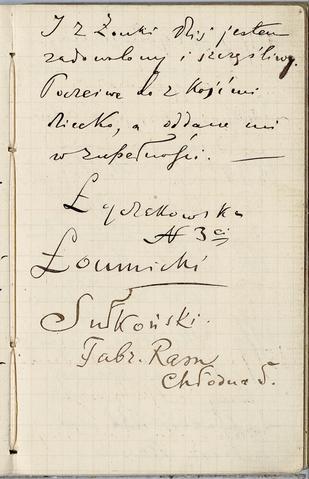 I z Żonki dziś jestem
zadowolony i szczęśliwy.
Poczciwe do z kości
dziecko, a oddane mi
w zupełności. —
Łyczakowska
N 3ci
Łomnicki
Sułkoński.
Fabr. Ram
Chłodna 5.